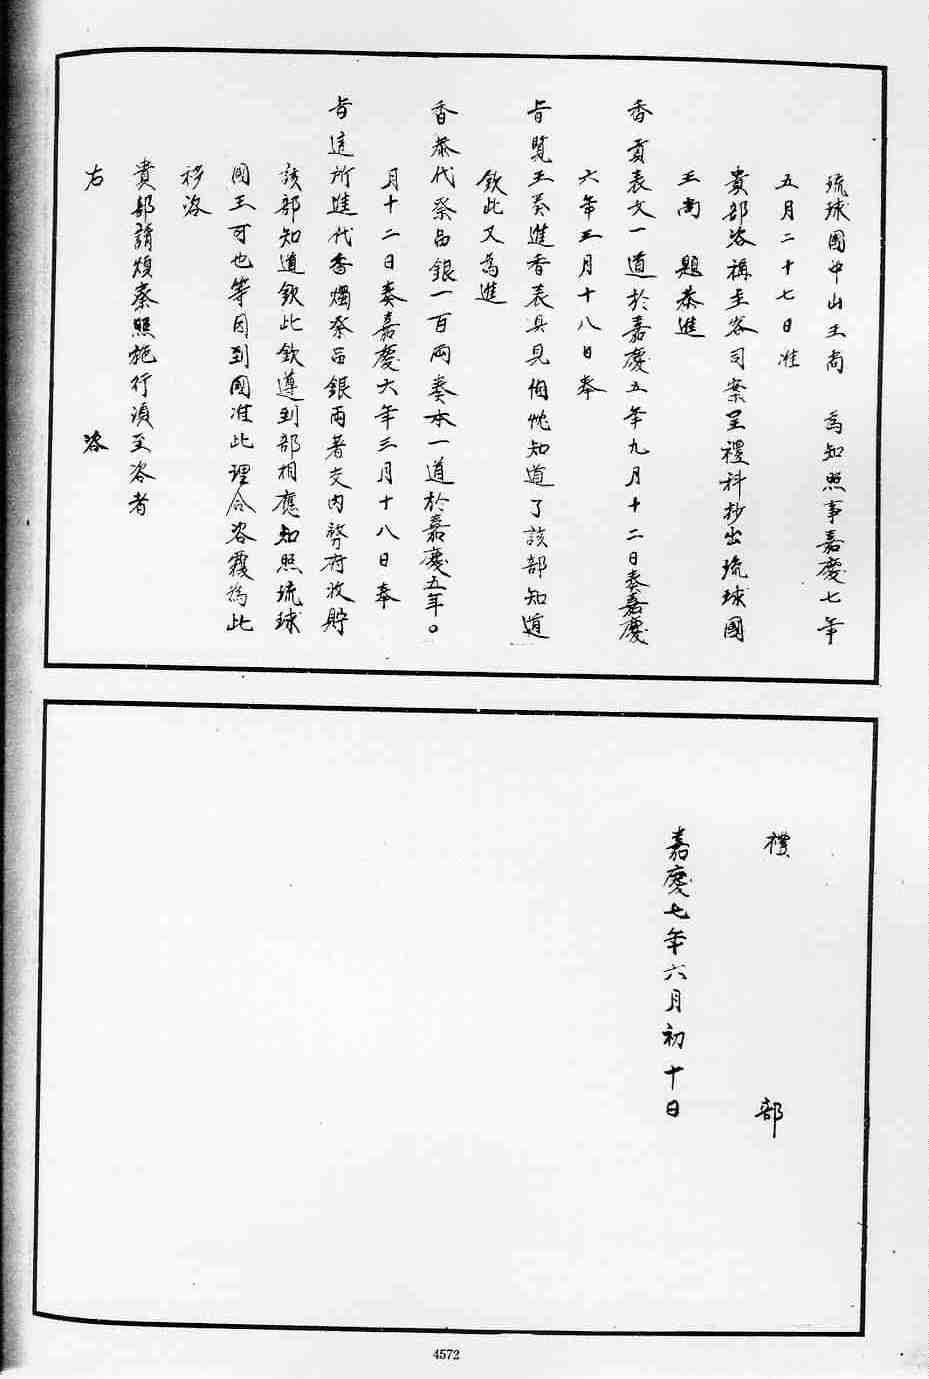 琉球國中山王尚　為知照事嘉慶七年
五月二十七日准
貴部咨稱主客司案呈禮科抄出琉球國
王尚　題恭進
香貢表文一道於嘉慶五年九月十二日奏嘉慶
六年三月十八日奉
旨覽王奏進香表具見悃忱知道了該部知道
欽此又為進
香恭代祭品銀一百兩奏本一道於嘉慶五年。
月十二日奏嘉慶六年三月十八日奉
旨這所進代香燭祭品銀兩著交內務府收貯
該部知道欽此欽遵到部相應知照琉球
國王可也等因到國准此理合咨覆為此
移咨
貴部請煩察照施行須至咨者
右　咨
禮　部
嘉慶七年六月初十日
4572